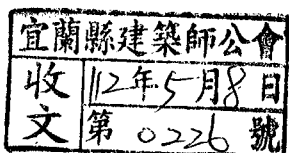 宜蘭縣建築師公會
收文
112年5月8日
第0226號